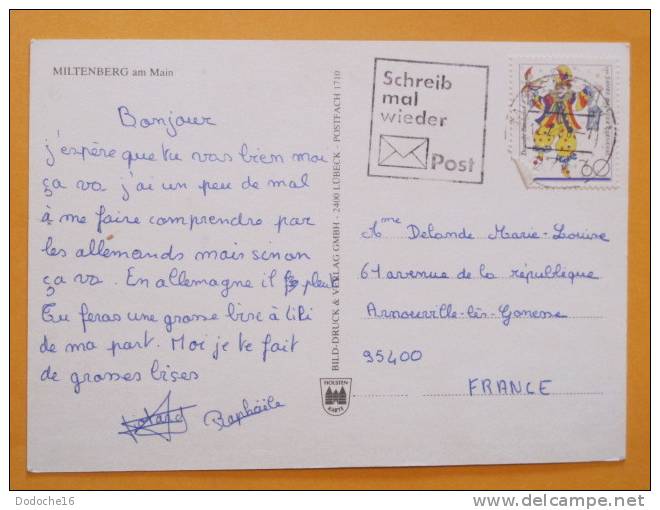 MILTENBERG am Main
Bonjour
j'espère que tu vas bien moi
ça va j'ai un peu de mal
à me faire comprendre par
les allemands mais sinon
ça va. En allemagne il pleut
Tu feras une grosse bise à lili
de ma part. Moi je te fait
de grosses bises
Raphaële
BILD-DRUCK & VERLAG GMBH - 2400 LÜBECK - POSTFACH 1710
HOLSTEN
KARTE
Schreib
mal
wieder
Post
60
Mme Delande Marie-Louise
61 avenue de la république
Arnouville-lès-Gonesse
95400
FRANCE
Dodoche16
delcampe.net